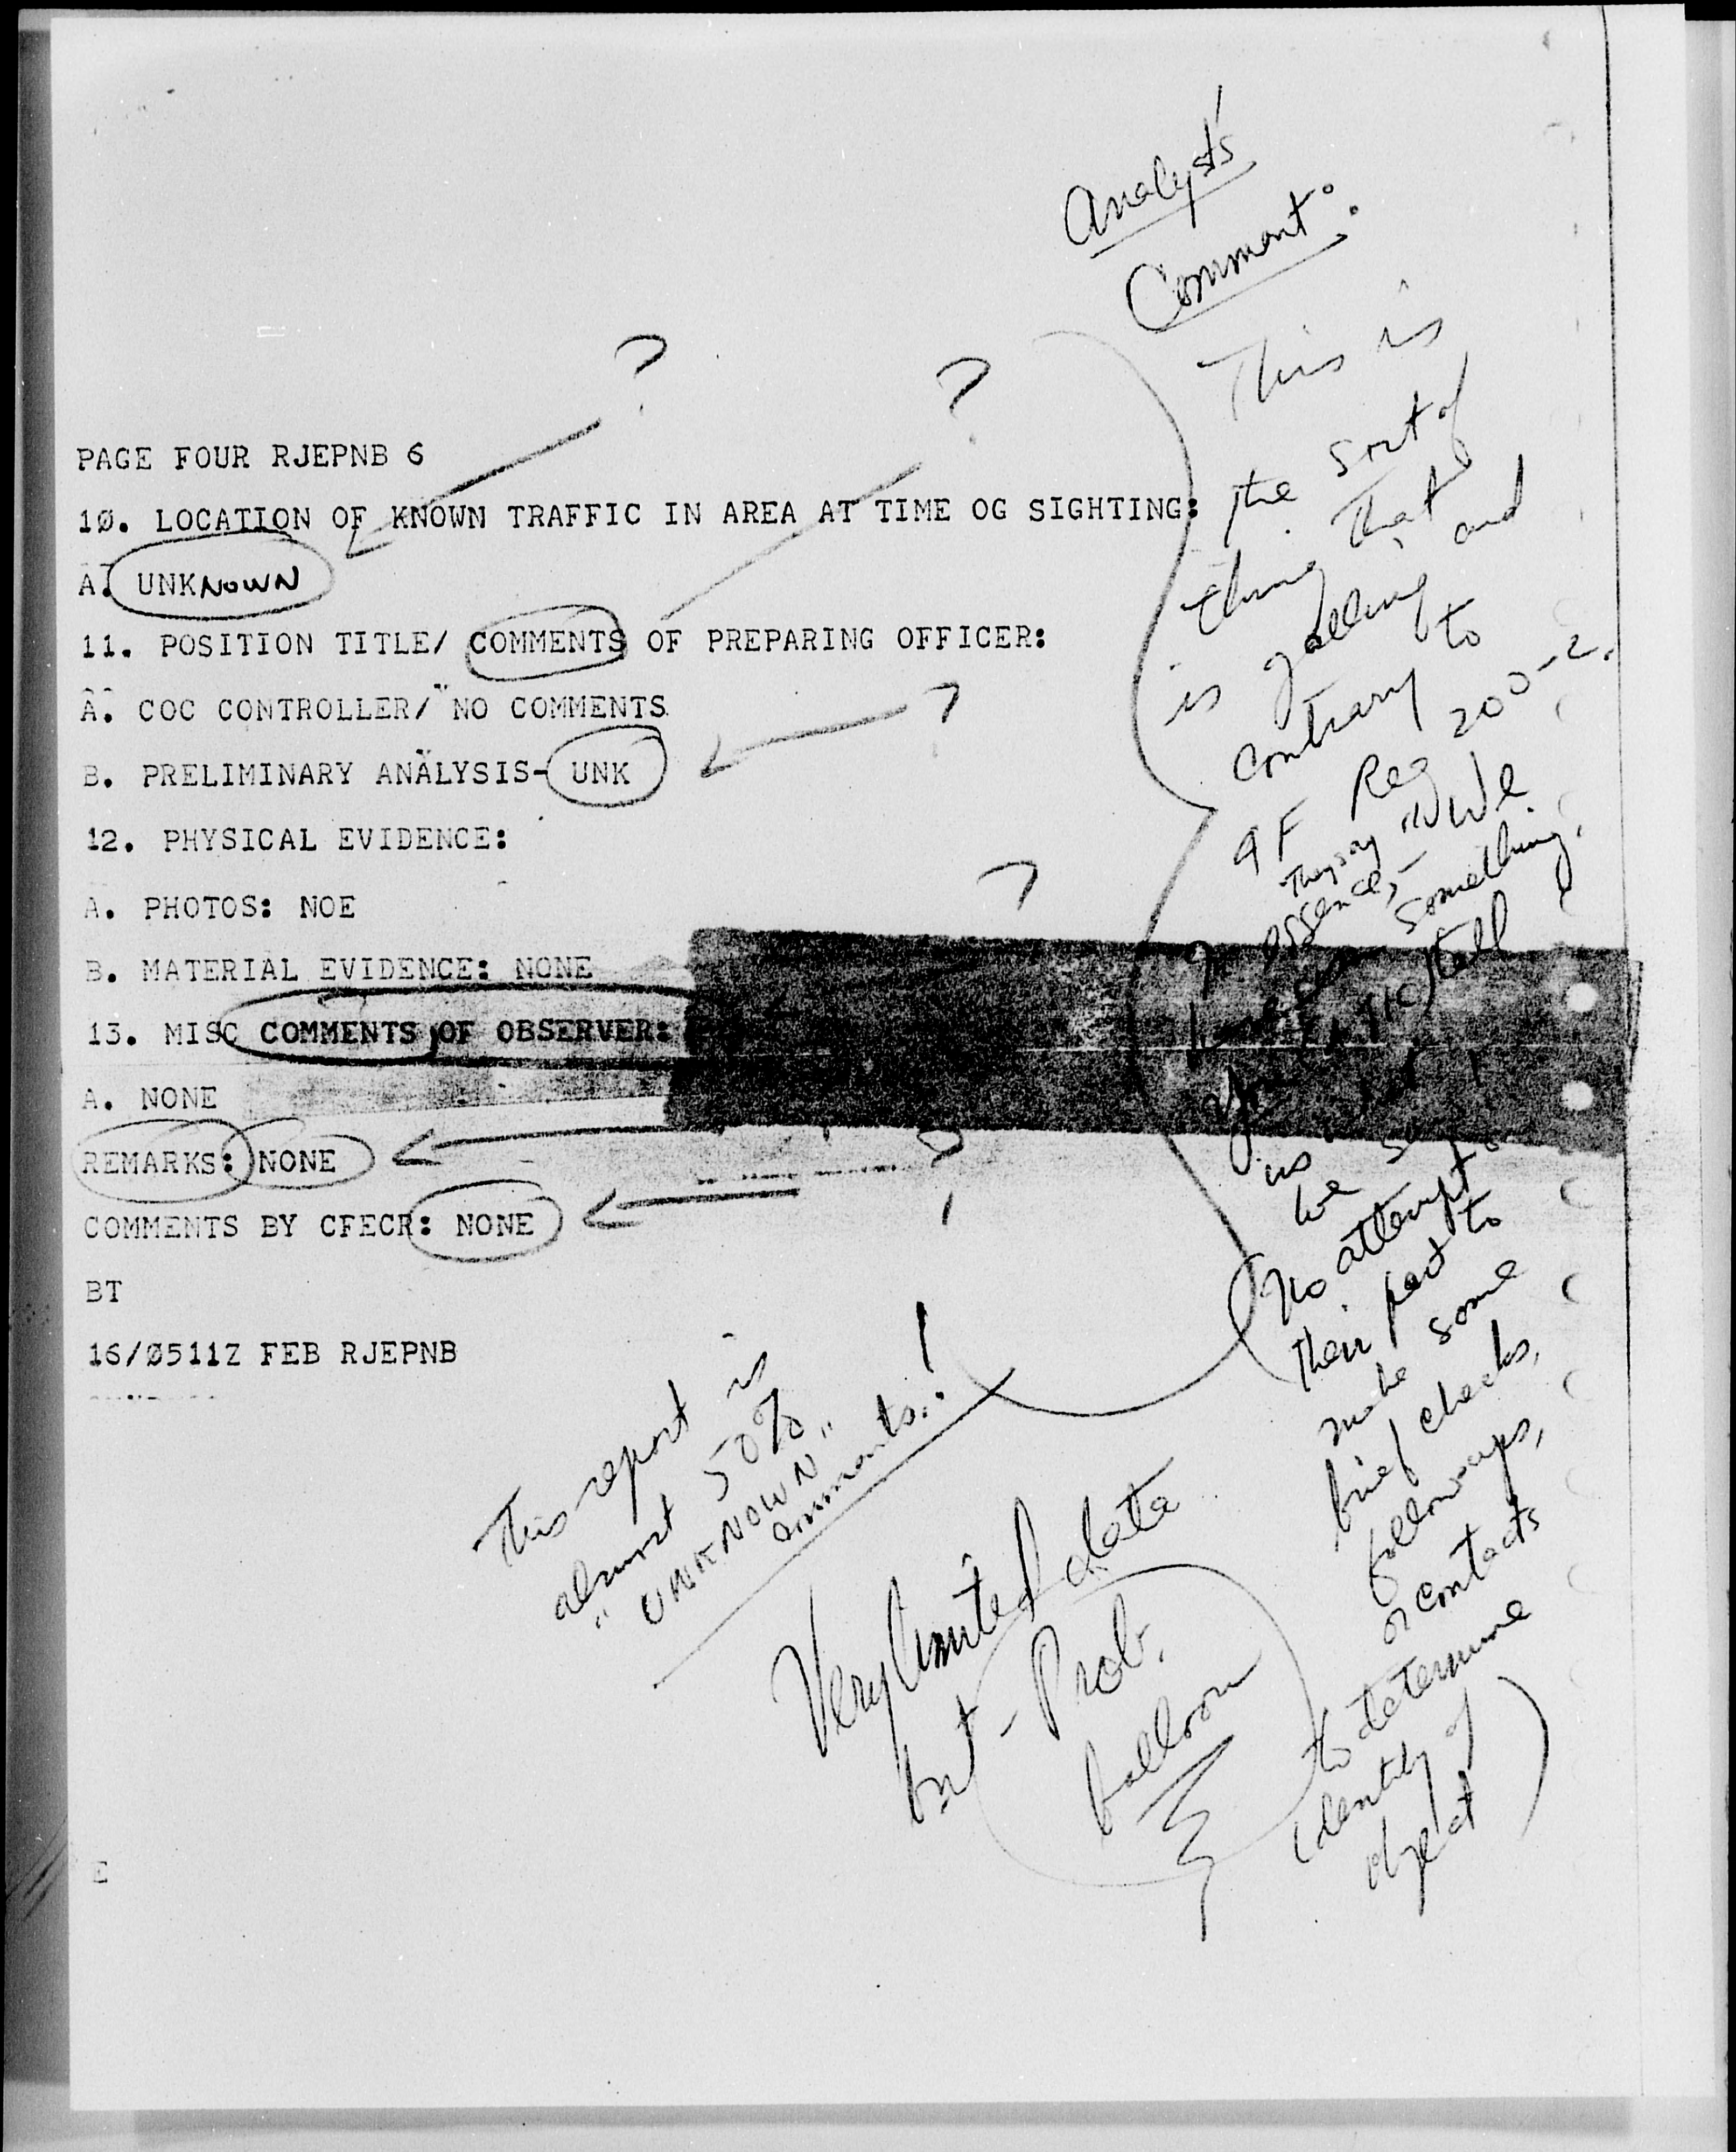 Analyst's
Comment:
This is
the sort of
thing that
is galling and
contrary to
AF Reg 200-2.
They say "We
In essence, -
something,
you tell
us
we
No attempt
their part to
make some
brief checks,
follow-ups,
or contacts
to determine
identity of
object)
?
?
PAGE FOUR RJEPNB 6
1Ø. LOCATION OF KNOWN TRAFFIC IN AREA AT TIME OG SIGHTING:
A. UNKNOWN
11. POSITION TITLE/ COMMENTS OF PREPARING OFFICER:
A. COC CONTROLLER/ NO COMMENTS
?
B. PRELIMINARY ANALYSIS- UNK
12. PHYSICAL EVIDENCE:
?
A. PHOTOS: NOE
B. MATERIAL EVIDENCE: NONE
13. MISC COMMENTS OF OBSERVER:
A. NONE
REMARKS: NONE
?
COMMENTS BY CFECR: NONE
BT
16/Ø511Z FEB RJEPNB
This report is
almost 50%
"UNKNOWN"
comments!
Very limited data
but - Prob.
balloon
E